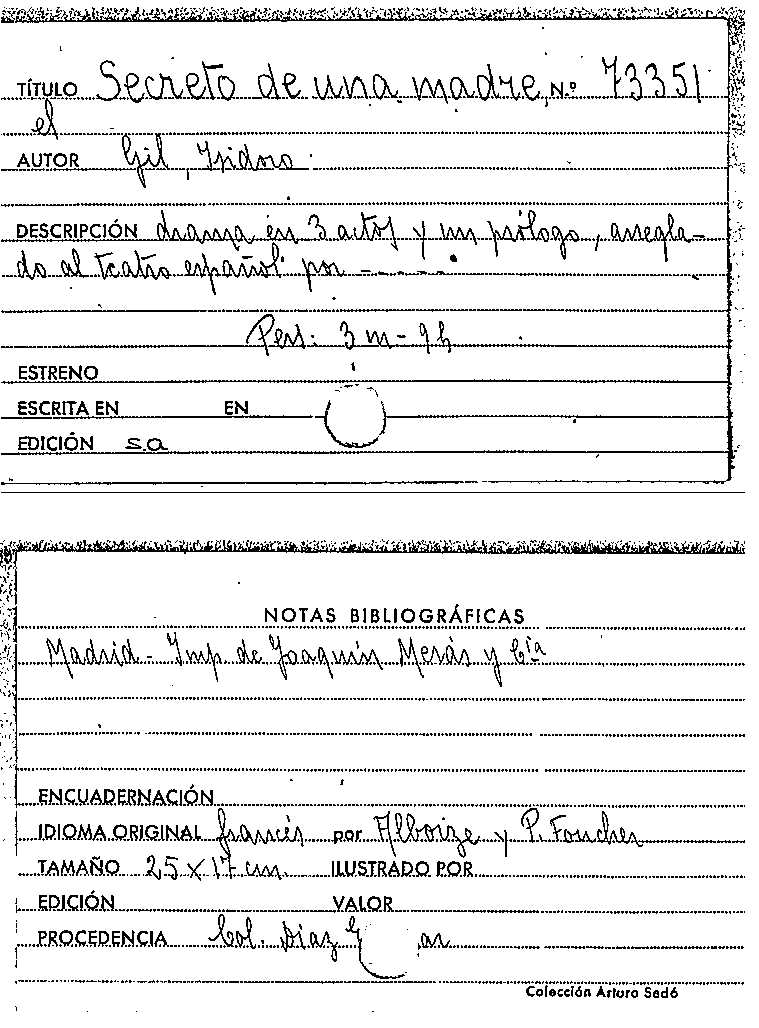 TÍTULO Secreto de una madre, N.º 73351
el
AUTOR Gil, Isidoro
DESCRIPCIÓN drama en 3 actos y un prólogo, arregla-
do al teatro español por - . . . . .
Pers: 3 m - 9 h
ESTRENO
ESCRITA EN EN
EDICIÓN s.a
NOTAS BIBLIOGRÁFICAS
Madrid - Imp de Joaquín Merás y Cía
ENCUADERNACIÓN
IDIOMA ORIGINAL francés por Alboize y P. Foucher
TAMAÑO 25 x 17 cm. ILUSTRADO POR
EDICIÓN VALOR
PROCEDENCIA Col. Díaz
Colección Arturo Sedó